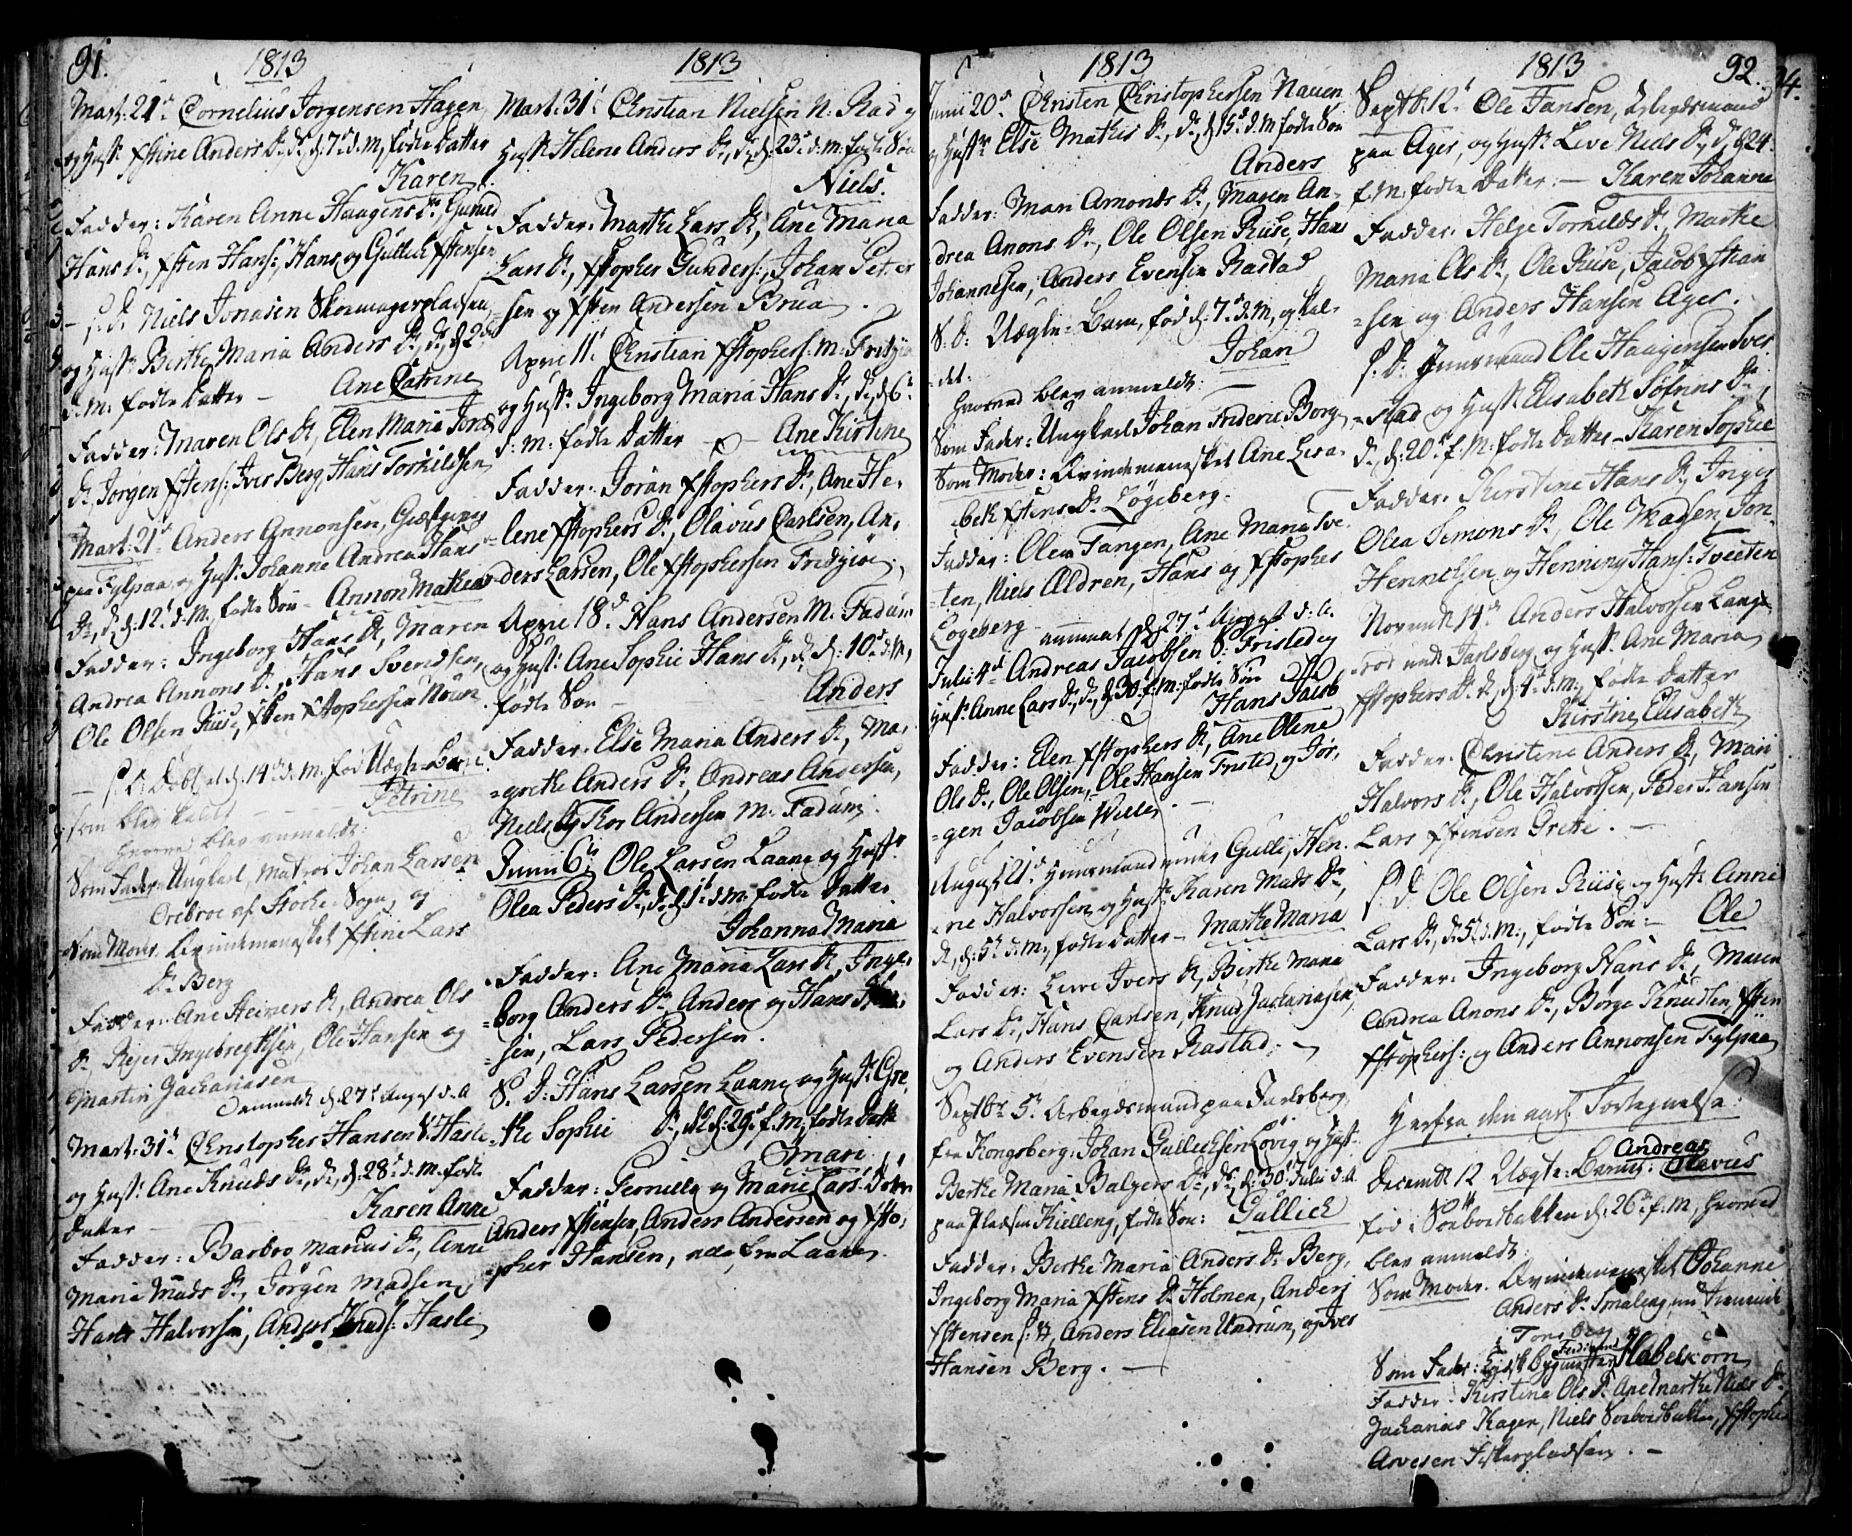 91.
1813
Mart: 21de Cornelius Jorgensen Hagen
og Hust: Xstine Anders Dr, Dr, d: 7de d: M, fødte Datter
Karen
Fadder: Karen Anne Haagens Dr, Gunild
Hans Dr, Xsten Hans: Hans og Gullich Xstensen
s: d: Niels Jonasen Skomagerpladsen
og Hust: Berthe Maria Anders Dr, Dr, d: 2de
d: M: fødte Datter — Ane Catrine
Fadder: Maren Ols Dr, Elen Maria Jons
Dr, Jorgen Xstens: Iver Berg, Hans Torkildsen
Mart: 21de Anders Annonsen, Giæstgiver
paa Fylpaa, og Hust: Johanne Andrea Hans
Dr, Dr, d: 12te d: M, fødte Søn — Annon Mathias
Fadder: Ingeborg Hans Dr, Maren
Andrea Annons Dr, Hans Svendsen,
Ole Olsen Ruse, Xsten Xstophersen Nøun
— s: d: Døbt et d: 14de d: M: fød Uægte Barn
som blev kaldt — Petrine
hvortil blev anmeldt:
Som Fader: Ungkarl, Matros Johan Larsen
Orebroe af Stocke Sogn, og
Som Moder: Qvindemennesket Xstine Lars
Dr Berg
Fadder: Ane Heiners Dr, Andrea Ols
Dr, Rejer Ingebregtsen, Ole Hansen og
Martin Zachariasen
anmeldt d: 27de August d: A
Mart: 31te Christopher Hansen V: Hasle
og Hust: Ane Knuds Dr, Dr, d: 28de d: M: fødte
Datter — Karen Anne
Fadder: Barbro Marcus Dr, Anne
Maria Mads Dr, Jørgen Madsen,
Hans Halvorsen, Anders Knuds: Hasle
1813
Mart: 31te Christian Nielsen N: Rad og
Hust: Helene Anders Dr, Dr, d: 23de d: M: fødte Søn
Niels
Fadder: Marthe Lars Dr, Ane Maria
Lars Dr, Xstopher Gunders: Johan Peter
=sen og Xsten Andersen Brua.
April 11te Christian Xstophers: M: Fridjøe
og Hust: Ingeborg Maria Hans Dr, Dr, d: 6te
d: M: fødte Datter — Ane Kirstine
Fadder: Joran Xstophers Dr, Ane He-
lene Xstophers Dr, Olavus Carlsen, An-
ders Larsen, Ole Xstophersen Fridjøe.
April 18de Hans Andersen M: Fadum
og Hust: Ane Sophie Hans Dr, Dr, d: 10de d: M,
fødte Søn — Anders
Fadder: Else Maria Anders Dr, Ma-
=grethe Anders Dr, Andreas Andersen,
Niels og Thor Andersen M: Fadum.
Junii 6te Ole Larsen Laane og Hust:
Olea Peders Dr, Dr, d: 1te d: M: fødte Datter
Johanna Maria
Fadder: Ane Maria Lars Dr, Inge-
=borg Anders Dr, Anders og Hans
=sen, Lars Pedersen.
S: D: Hans Larsen Laane og Hust: Gre-
the Sophie Dr, Dr, d: 29de f: M: fødte Datter
Mari
Fadder: Pernille og Marie Lars Døttr
Anders Xstensen, Anders Andersen og Xsto-
=pher Hansen, alle fra Laane.
1813
Junii 20de Christen Christophersen Nauen
og Hust: Else Mathis Dr, Dr, d: 15de d: M: fødte Søn
Anders
Fadder: Mari Amonds Dr, Maren An-
drea Anons Dr, Ole Olsen Ruse, Hans
Johannesen, Anders Evensen Rastad
S: D: Uægte Barn, fød d: 7de d: M, og kal-
=det: Johan
hvortil blev anmeldt:
Som Fader: Ungkarl Johan Frideric Borg
Som Moder: Qvindemennesket Ane Lisa-
beth Xstens Dr Løgeberg.
Fadder: Olea Tangen, Ane Maria Tve-
=ten, Niels Ældren, Hans og Xstopher
Løgeberg — anmeldt d: 27de August d: A.
Julii 4de Andreas Jacobsen V: Fristed og
Hust: Anne Lars Dr, Dr, d: 30te f: M: fødte Søn
Hans Jacob
Fadder: Elen Xstophers Dr, Ane Olene
Ols Dr, Ole Olsen, Ole Hansen Fristed, og Jør-
=gen Jacobsen Welle.
August 21de Huusmand under Gulli, Hen-
=ric Halvorsen og Hust: Karen Mads Dr,
Dr, d: 5te d: M, fødte Datter — Marthe Maria
Fadder: Live Ivers Dr, Berthe Maria
Lars Dr, Hans Carlsen, Knud Zachariasen,
og Anders Evensen Rastad.
Septbr 5te Arbeydsmand paa Jarlsberg,
fra Kongsberg: Johan Gullichsen Løvig og Hust:
Berthe Maria Balzers Dr, Dr, d: 30te Julii d: A.
paa Pladsen Kielleng, fødte Søn: Gullich
Fadder: Berthe Maria Anders Dr Berg,
Ingeborg Maria Xstens Dr Holmen, Anders
Xstensen, Anders Eliasen Undrum, og Iver
Hansen Berg. —
1813
92.
Septbr 12te Ole Jansen, Arbeydsmand
paa Ager, og Hust: Live Niels Dr, Dr, d: 24de
f: M: fødte Datter: — Karen Johanne
Fadder: Helge Torkilds Dr, Marthe
Maria Ols Dr, Ole Ruse, Jacob Xstian
=sen og Anders Hansen Ager.
S: D: Huusmand Ole Haagensen Sver
=stad og Hust: Elisabeth Sofrens Dr,
Dr, d: 20de f: M: fødte Datter — Karen Sophie
Fadder: Kirstine Hans Dr, Inger
Olea Simons Dr, Ole Madsen, Jon
Henrichsen og Henning Hans: Tveeten
Novembr 14de Anders Halvorsen Lange-
=rød under Jarlsberg, og Hust: Ane Maria
Xstophers Dr, Dr, d: 4de d: M: fødte Datter
Kirstine Elisabeth
Fadder: Christine Anders Dr, Mari
Halvors Dr, Ole Halvorsen, Peder Hansen
Lars Xstensen Grette. —
S: D: Ole Olsen Ruse og Hust: Anne
Lars Dr, Dr, d: 5te d: M, fødte Søn — Ole
Fadder: Ingeborg Hans Dr, Maren
Andrea Anons Dr, Børge Knudsen, Xsten
Xstophers: og Anders Annonsen Fylpaa
Herfra den aarl: Fortegnelse:
Decembr 12 Uægte Barn: Andreas Olavus
fød i Sørbordbakken d: 26de f: M, hvortil
blev anmeldt:
Som Moder: Qvindemennesket Johanne
Anders Dr Smaleng
Tonsberg
Som Fader: Ferdinand Habelkorn
Fadder: Kirstina Ols Dr, Ane Marthe Niels Dr,
Zacharias Hagen, Niels Sørbordbakken, Xstopher
Arvesen Fiskerpladsen. —